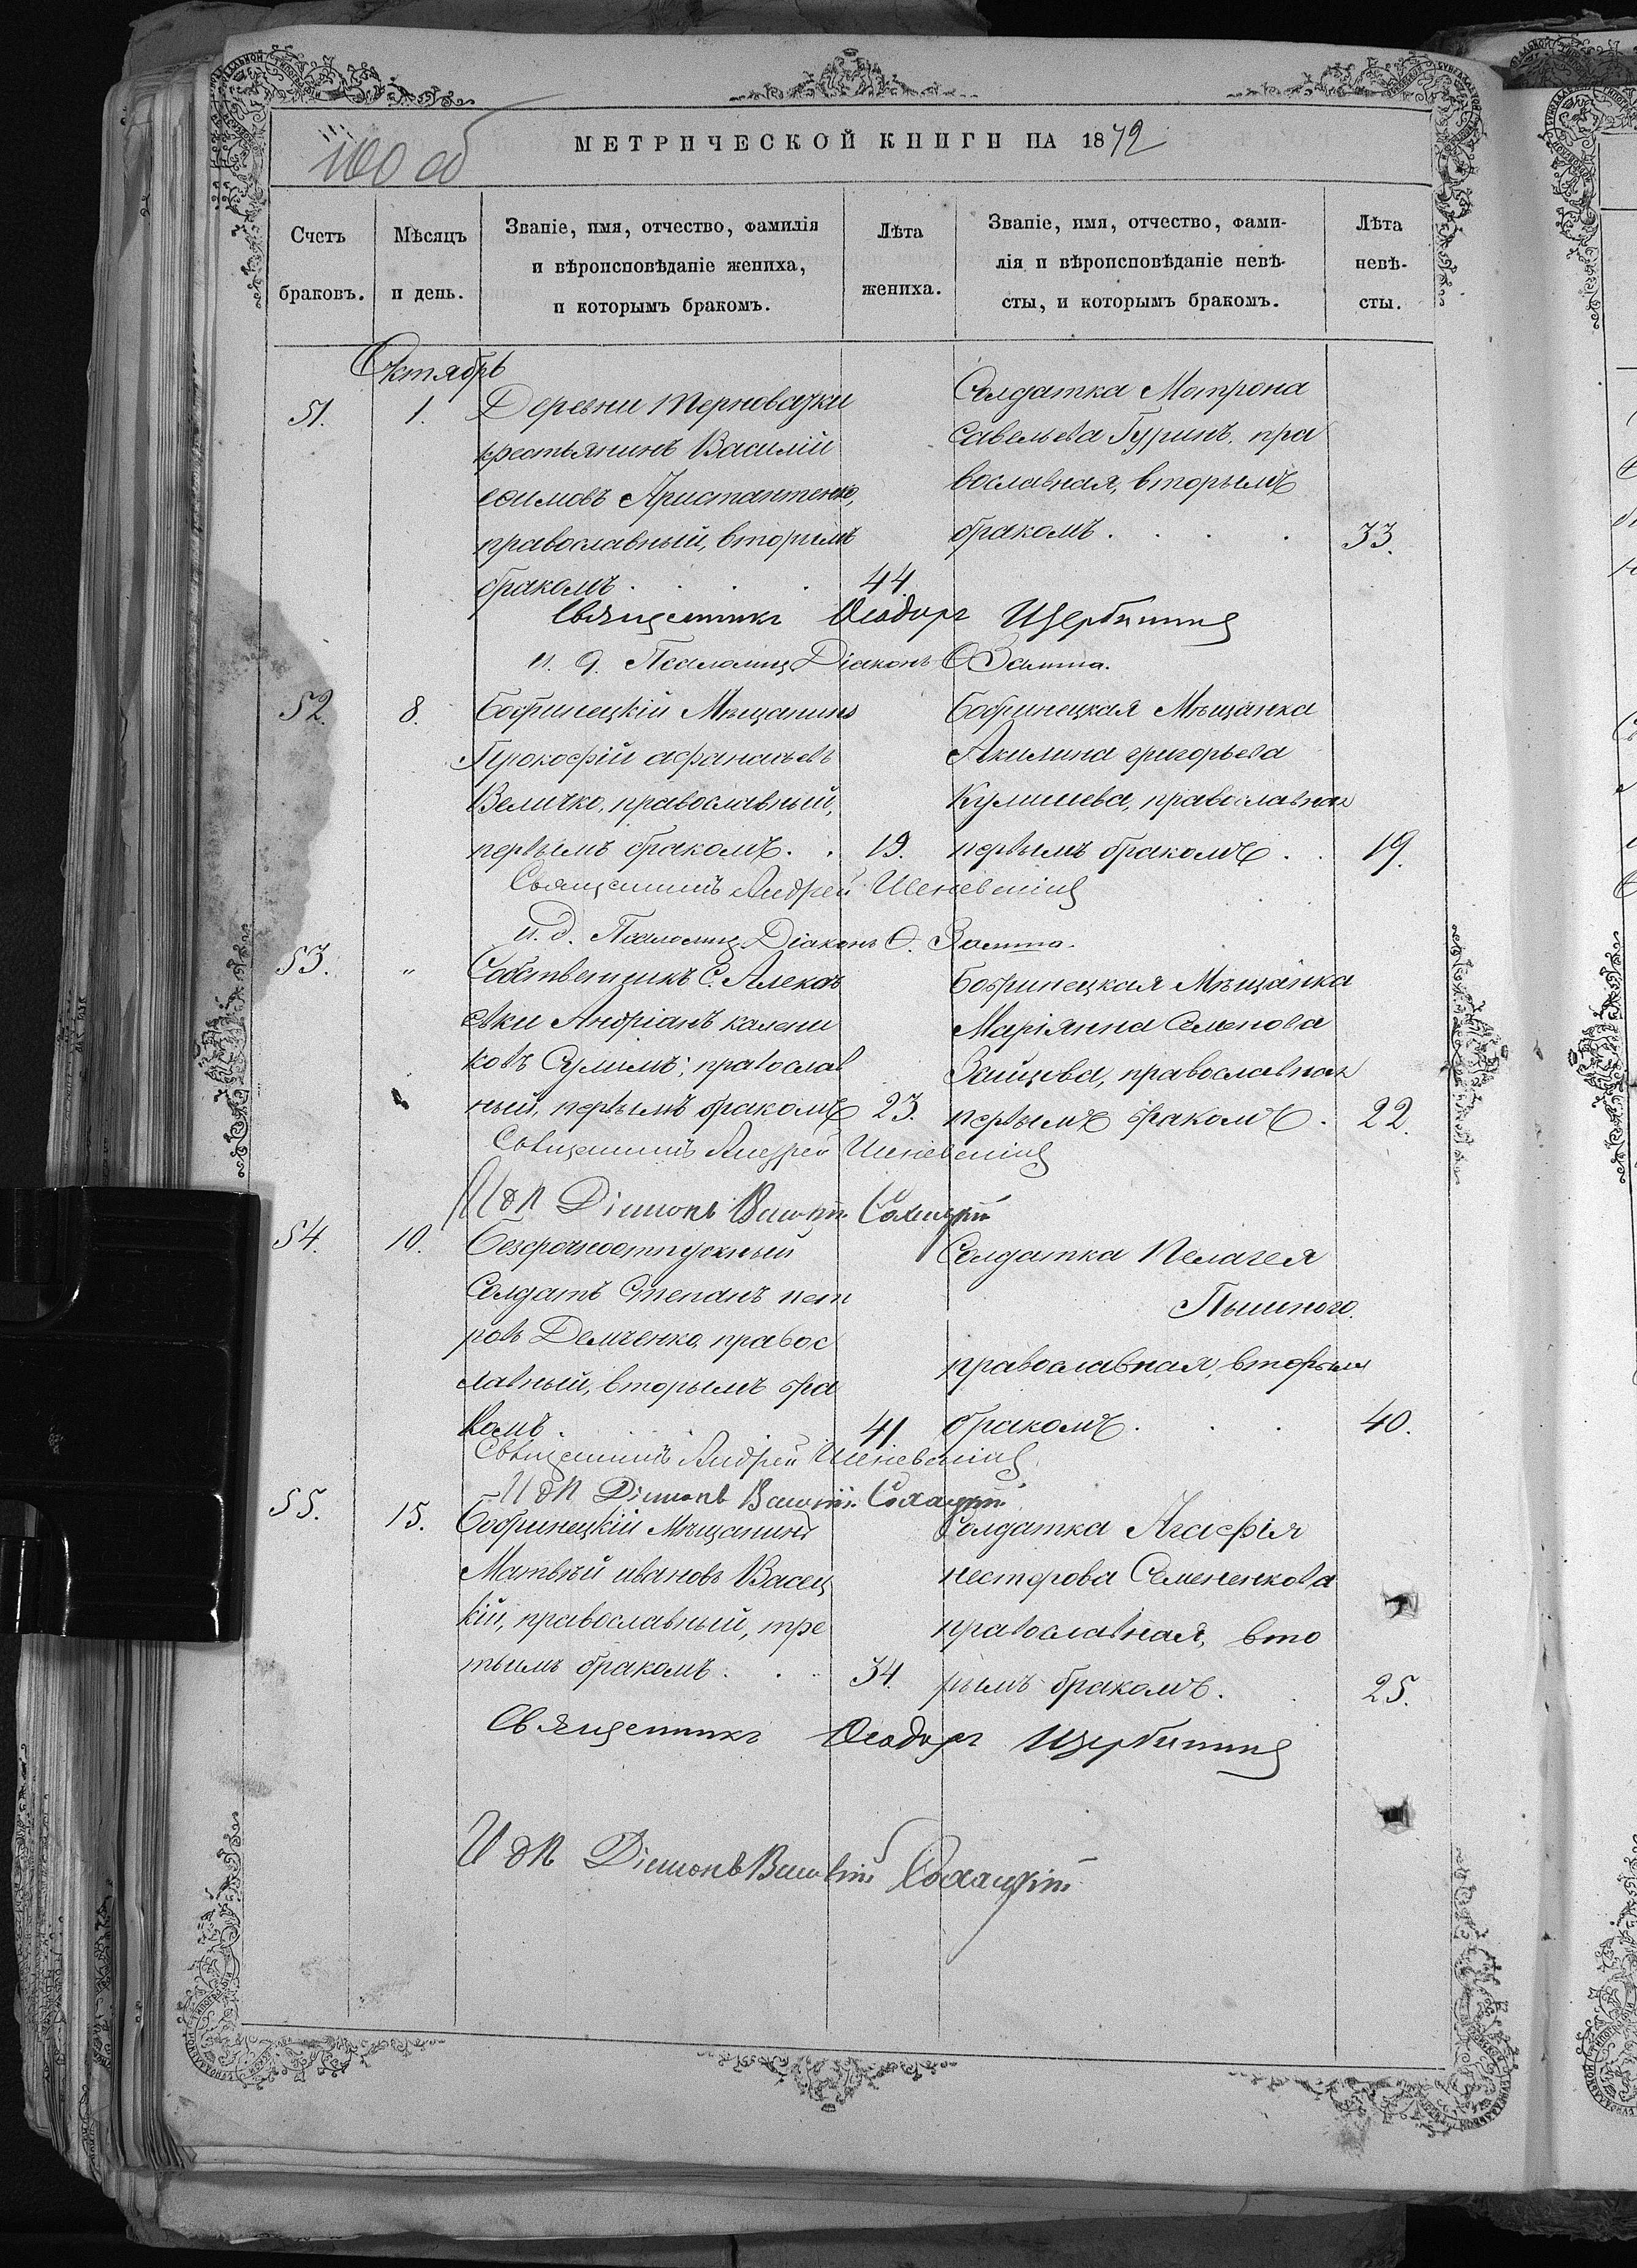 МЕТРИЧЕСКОЙ КНИГИ НА 1872
Счетъ браковъ.
Мѣсяцъ и день.
Званіе, имя, отчество, фамилія
и вѣроисповѣданіе жениха,
и которымъ бракомъ.
Лѣта жениха.
Званіе, имя, отчество, фами-
лія и вѣроисповѣданіе невѣ-
сты, и которымъ бракомъ.
Лѣта невѣ-
сты.
Октябрь
51.
1.
Деревни Терноватки
крестьянинъ Василій
ефимовъ
православный, вторымъ
бракомъ . . . . 44.
Солдатка Матрона
Савельева Гуринъ, пра
вославная, вторымъ
бракомъ . . . . 33.
Священникъ Ѳеодоръ Щербининъ
и. д. Псаломщ. Діаконъ Ѳ Залита.
52.
8.
Бобринецкій Мѣщанинъ
Прокофій афанасьевъ
Величко, православный,
первымъ бракомъ . . 19.
Бобринецкая Мѣщанка
Акилина григорьева
Кулишева, православная
первымъ бракомъ . . 19.
Священникъ Андрей
и. д. Псаломщ. Діаконъ Ѳ. Залита.
53.
"
Собственникъ С. Алексѣ
евки Андріанъ калени
ковъ Сулимъ; православ
ный, первымъ бракомъ 23.
Бобринецкая Мѣщанка
Маріянна Семенова
Зайцева, православная
первымъ бракомъ . 22.
Священникъ Андрей
И д П Діаконъ Василій Сохацкій
54.
10.
безсрочноотпускный
Солдатъ Степанъ пет
ровъ Демченко, правос
лавный, вторымъ бра
комъ . . . 41
Солдатка Пелагея
Пышного.
православная, вторымъ
бракомъ . . . 40.
Священникъ Андрей
И д П Діаконъ Василій Сохацкій
55.
15.
Бобринецкій Мѣщанинъ
Матвѣй ивановъ Васец
кій, православный, тре
тьимъ бракомъ . . . 34.
Солдатка Агафія
нестерова Семененкова
православная, вто
рымъ бракомъ . . 25.
Священникъ Ѳеодоръ Щербининъ
И д П Діаконъ Василій Сохацкій